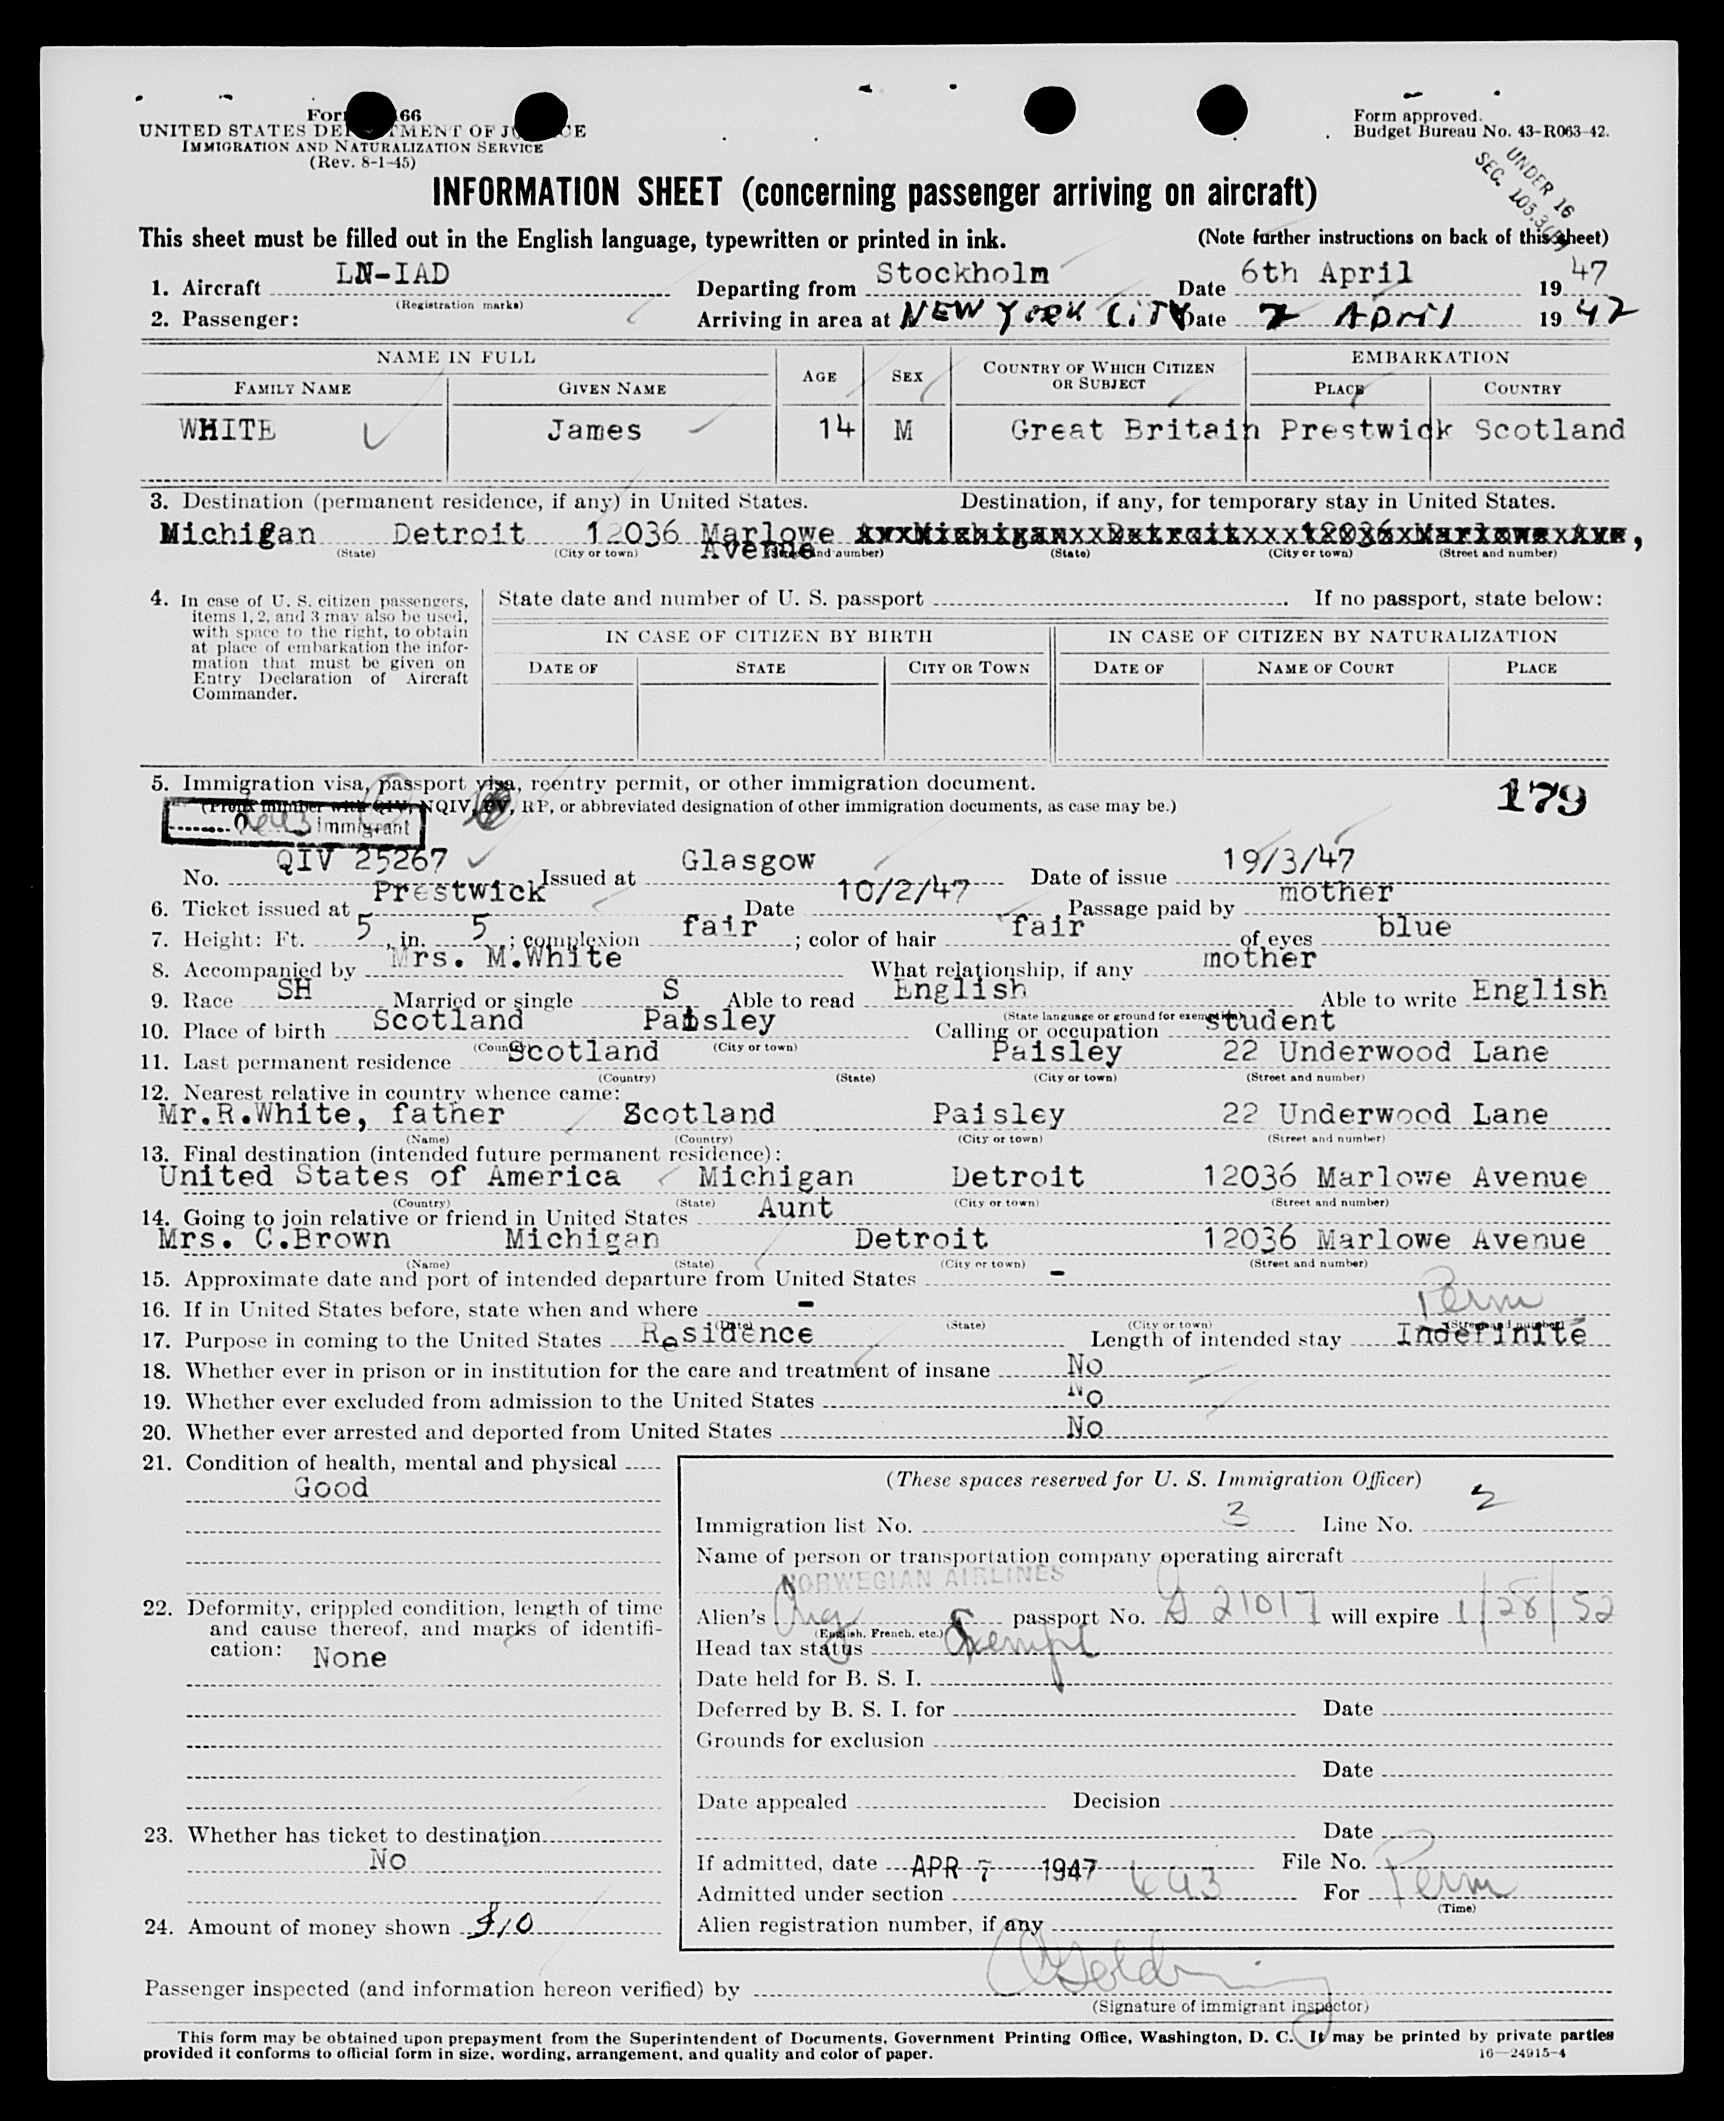 UNITED STATES DEPARTMENT OF JUSTICE
IMMIGRATION AND NATURALIZATION SERVICE
(Rev. 8-1-45)
Form approved.
Budget Bureau No. 43-R063-42.
UNDER 16
SEC.
INFORMATION SHEET (concerning passenger arriving on aircraft)
This sheet must be filled out in the English language, typewritten or printed in ink. (Note further instructions on back of this sheet)
1. Aircraft LN-IAD Departing from Stockholm Date 6th April 1947
(Registration marks)
2. Passenger: Arriving in area at NEW YORK CITY Date 7 April 1947
NAME IN FULL AGE SEX COUNTRY OF WHICH CITIZEN OR SUBJECT EMBARKATION
FAMILY NAME GIVEN NAME PLACE COUNTRY
WHITE James 14 M Great Britain Prestwick Scotland
3. Destination (permanent residence, if any) in United States. Destination, if any, for temporary stay in United States.
Michigan Detroit 12036 Marlowe
Avenue
(State) (City or town) (Street and number) (State) (City or town) (Street and number)
4. In case of U. S. citizen passengers,
items 1, 2, and 3 may also be used,
with space to the right, to obtain
at place of embarkation the infor-
mation that must be given on
Entry Declaration of Aircraft
Commander.
State date and number of U. S. passport . If no passport, state below:
IN CASE OF CITIZEN BY BIRTH IN CASE OF CITIZEN BY NATURALIZATION
DATE OF STATE CITY OR TOWN DATE OF NAME OF COURT PLACE
5. Immigration visa, passport visa, reentry permit, or other immigration document. 179
(Prefix number with QIV, NQIV, PV, RP, or abbreviated designation of other immigration documents, as case may be.)
immigrant
No. QIV 25267 Issued at Glasgow Date of issue 19/3/47
6. Ticket issued at Prestwick Date 10/2/47 Passage paid by mother
7. Height: Ft. 5, in. 5; complexion fair; color of hair fair of eyes blue
8. Accompanied by Mrs. M.White What relationship, if any mother
9. Race SH Married or single S Able to read English Able to write English
(State language or ground for exemption)
10. Place of birth Scotland Paisley Calling or occupation student
(Country) (City or town)
11. Last permanent residence Scotland Paisley 22 Underwood Lane
(Country) (State) (City or town) (Street and number)
12. Nearest relative in country whence came:
Mr.R.White, father Scotland Paisley 22 Underwood Lane
(Name) (Country) (City or town) (Street and number)
13. Final destination (intended future permanent residence):
United States of America Michigan Detroit 12036 Marlowe Avenue
(Country) (State) (City or town) (Street and number)
14. Going to join relative or friend in United States Aunt
Mrs. C.Brown Michigan Detroit 12036 Marlowe Avenue
(Name) (State) (City or town) (Street and number)
15. Approximate date and port of intended departure from United States -
16. If in United States before, state when and where - Perm
(Date) (State) (City or town) (Street and number)
17. Purpose in coming to the United States Residence Length of intended stay Indefinite
18. Whether ever in prison or in institution for the care and treatment of insane No
19. Whether ever excluded from admission to the United States No
20. Whether ever arrested and deported from United States No
21. Condition of health, mental and physical
Good
22. Deformity, crippled condition, length of time
and cause thereof, and marks of identifi-
cation: None
23. Whether has ticket to destination
No
24. Amount of money shown $10
(These spaces reserved for U. S. Immigration Officer)
Immigration list No. 3 Line No. 2
Name of person or transportation company operating aircraft
NORWEGIAN AIRLINES
Alien's Eng passport No. 21017 will expire 1/28/52
(English, French, etc.)
Head tax status Exempt
Date held for B. S. I.
Deferred by B. S. I. for Date
Grounds for exclusion
Date
Date appealed Decision
Date
If admitted, date APR 7 1947 File No.
Admitted under section 4a3 For Perm
(Time)
Alien registration number, if any
Passenger inspected (and information hereon verified) by
(Signature of immigrant inspector)
This form may be obtained upon prepayment from the Superintendent of Documents, Government Printing Office, Washington, D. C. It may be printed by private parties
provided it conforms to official form in size, wording, arrangement, and quality and color of paper.
16—24915-4